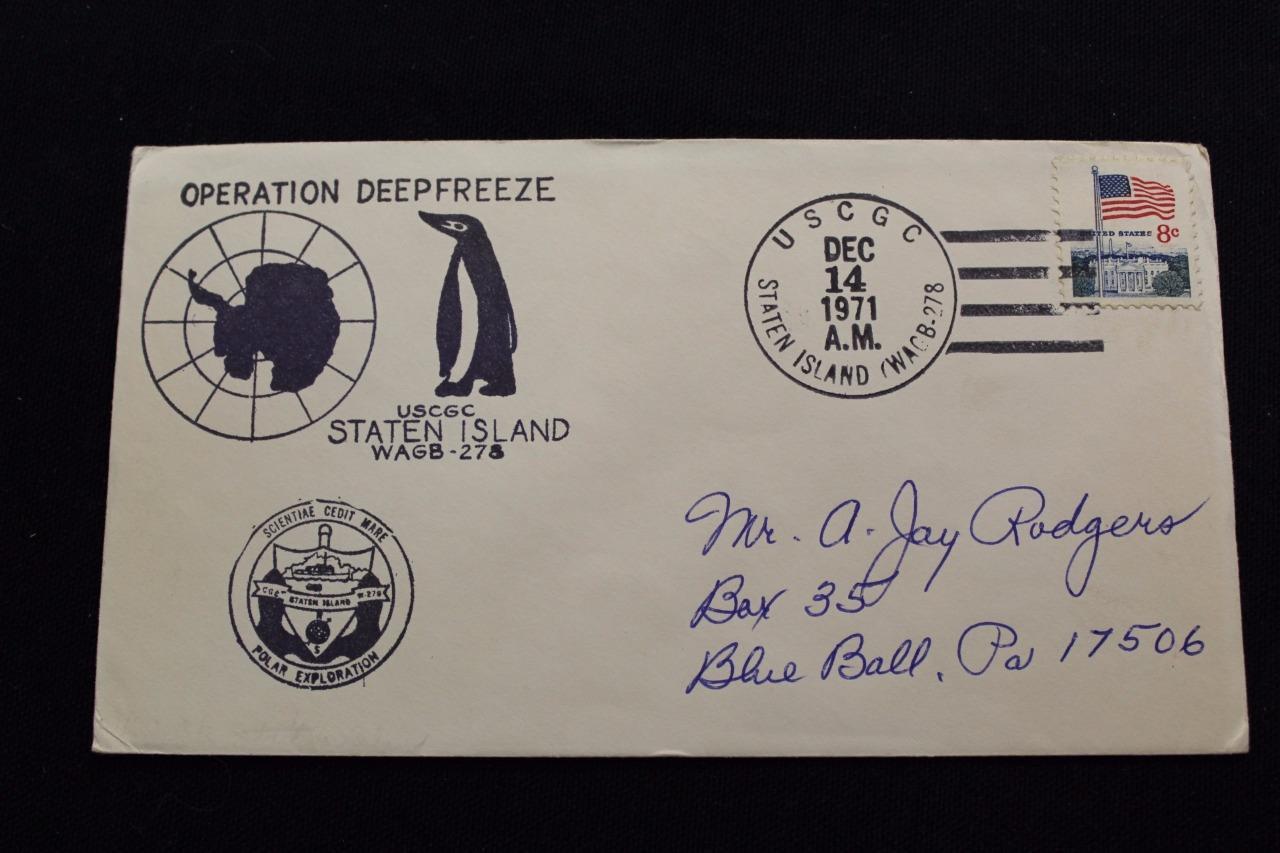 OPERATION DEEPFREEZE
USCGC
STATEN ISLAND
WAGB-278
SCIENTIAE CEDIT MARE
CGC STATEN ISLAND W-278
S
POLAR EXPLORATION
USCGC
DEC
14
1971
A.M.
STATEN ISLAND (WAGB-278
UNITED STATES 8c
Mr. A. Jay Rodgers
Box 35
Blue Ball, Pa 17506